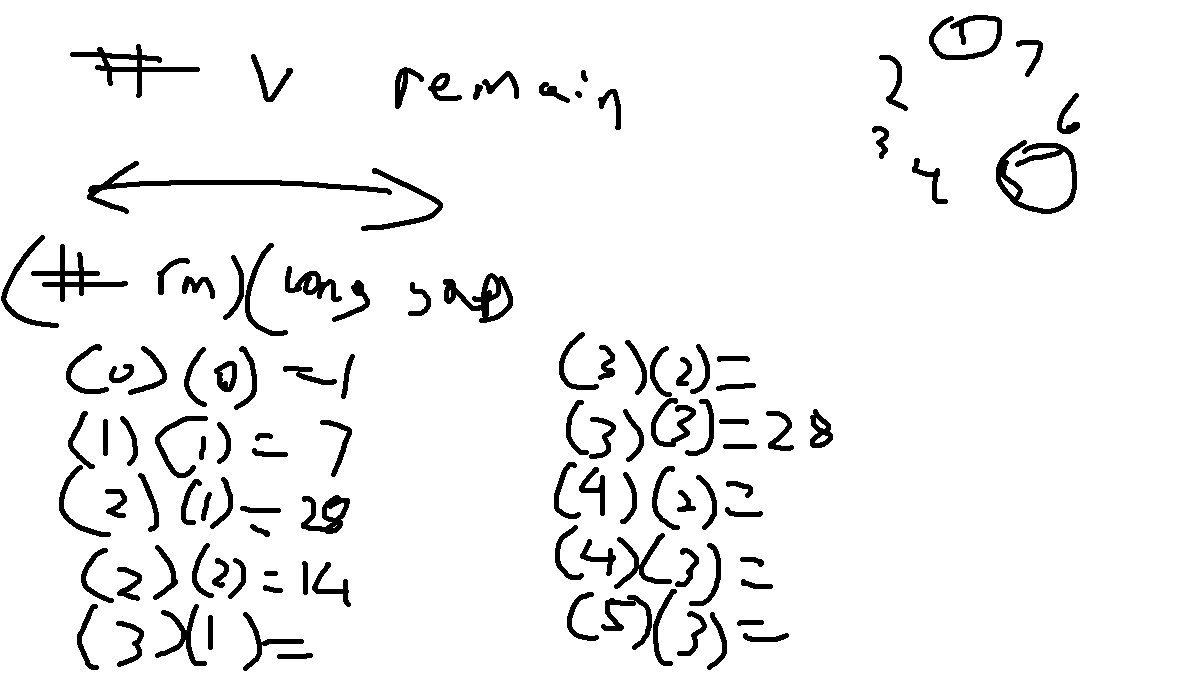 # V remain
(# rm)(long gap)
(0)(0)=1
(1)(1)=7
(2)(1)=28
(2)(2)=14
(3)(1)=
(3)(2)=
(3)(3)=28
(4)(2)=
(4)(3)=
(5)(3)=
1
2 7
3 6
4